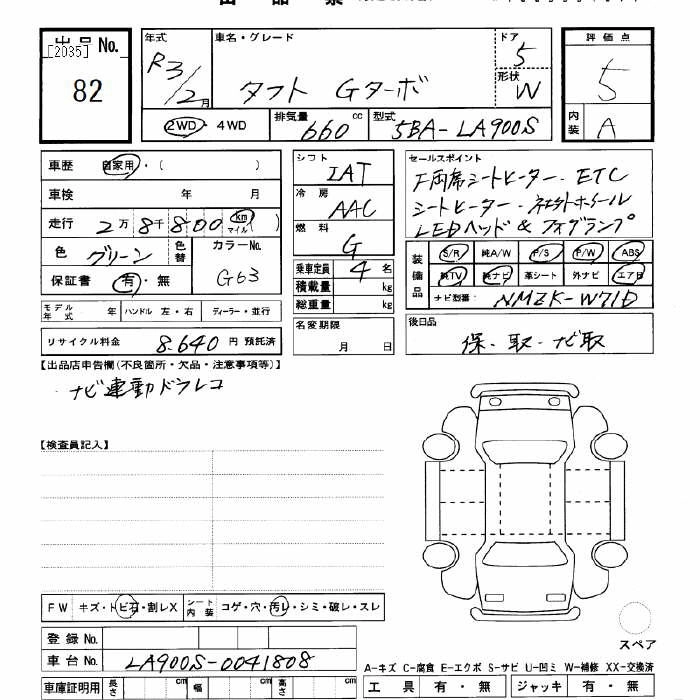 出品票
出品No.
[2035]
82
年式
R3/2月
車名・グレード
タフト Gターボ
ドア
5
形状
W
2WD・4WD
排気量
660cc
型式
5BA-LA900S
評価点
5
内装
A
車歴 自家用・( )
車検 年 月
走行 2万8千800 km マイル
色 グリーン
色替
カラーNo.
G63
保証書 有・無
モデル年式 年
ハンドル 左・右
ディーラー・並行
リサイクル料金 8,640 円 預託済
シフト
IAT
冷房
AAC
燃料
G
乗車定員 4 名
積載量 kg
総重量 kg
名変期限
月 日
セールスポイント
シートヒーター・ETC
シートヒーター
LEDヘッド & フォグランプ
装備品
S/R 純A/W P/S P/W ABS
純TV 純ナビ 革シート 外ナビ エアB
ナビ型番 NMZK-W71D
後日品
保・取・ナビ取
【出品店申告欄(不良箇所・欠品・注意事項等)】
・ナビ連動ドラレコ
【検査員記入】
FW キズ・トビ石・割レX
シート内装 コゲ・穴・汚レ・シミ・破レ・スレ
登録No.
車台No. LA900S-0041808
車庫証明用 長さ cm 幅 cm 高さ cm
スペア
A-キズ C-腐食 E-エクボ S-サビ U-凹ミ W-補修 XX-交換済
工具 有・無 ジャッキ 有・無